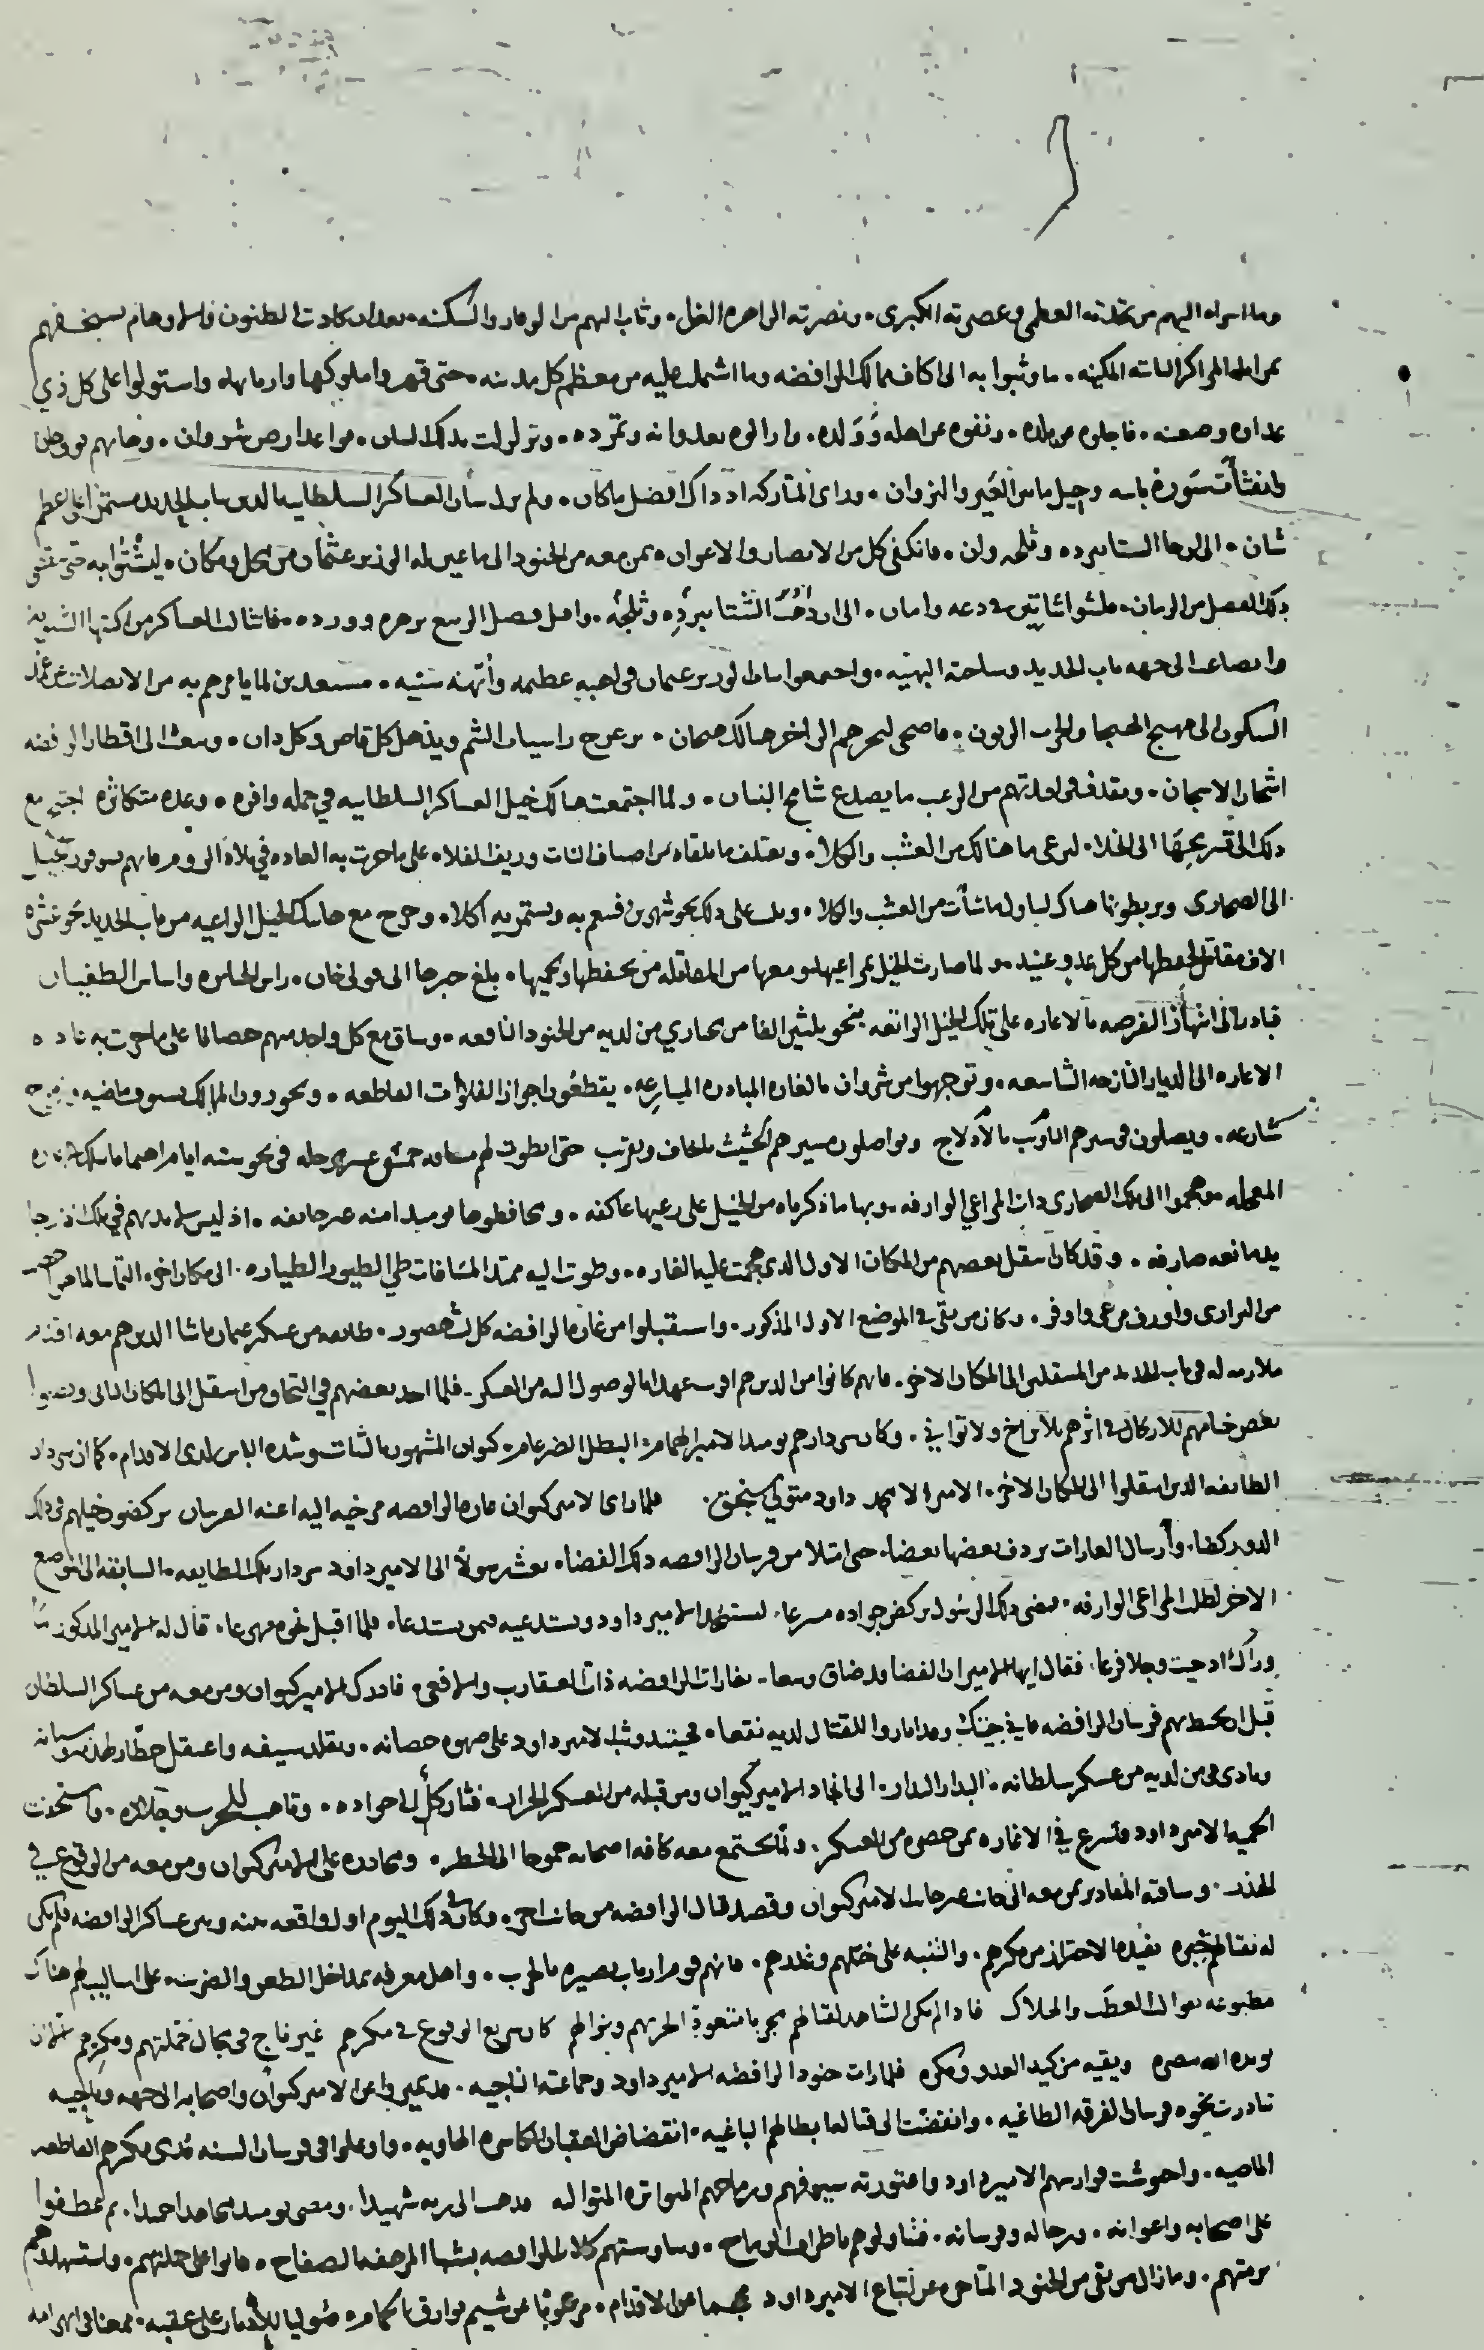 وما اسراه اليهم من نجدته العظمى وعصرته الكبرى ونصرته الزاهرة الغرا وثاب اليهم من الوقار والسكينه بعد ان كادت الظنون والاوهام تستخفهم
عن الثبات المكينه ما وثبوا به الى كافة ممالك الرافضه وما اشتملت عليه من معظم كل مدينه حتى قهروا ملوكها واربابها واستولوا على كل ذي
عداوه وضعينه فاجلوه عن بلده ونفوه عن اهله وولده وازالوه بعدوانه وتمرده وتزلزلت بذلك ارض شروان
وانفثأت سورة باسه وحيل ما بين العير والنزوان وراى المتاركه اذ ذاك افضل ما كان ولم يزل شان العساكر السلطانيه الذين بباب الحديد مستمرا على اعظم
شان الى ان جا الشتا ببرده وثلجه وان فانكفى كل من الانصار والاعوان بمن معه من الجنود الى ما عين له الوزير عثمان من محل ومكان ليشتوا به حتى تنقضي
ذلك الفصل من الزمان فلبثوا شاتين في دعه وامان الى ان ذهب الشتا ببرده وثلجه واقبل فصل الربيع بزهره وورده فانثالت العساكر من اكنتها الشتويه
وانصاعت الى جهه باب الحديد وساحته البهيه واجتمعوا بساط الوزير عثمان في اهبه عظيمه وأبهة سنيه مستعدين لما يامرهم به من الانصلات عن عند
السكون الى مهيج الهيجا والحرب الزبون فاضحى لبحرهم الزاخر هنالك هيجان يزعزع راسيات الشم ويذهل كل قاص وكل دان ويبعث الى اقطار الرافضه
اشجان الاسجان ويقذف في افئدتهم من الرعب ما يصدع شامخ البنيان ولما اجتمعت هنالك خيل العساكر السلطانيه في جمله وافره وعده متكاثره احتيج مع
ذلك الى تسريحها الى الخلا لترعى ما هنالك من العشب والكلا وتعتلف ما تلقاه من اصناف النبات وريف الفلا على ما جرت به العاده في بلاد الروم فانهم يسوقون الخيل
الى الصحارى ويربطونها هناك لتناول ما شات من العشب والكلا وتلبث على ذلك نحو شهرين تنعم به وتستمريه اكلا وخرج مع هاتيك الخيل الراعيه من باب الحديد نحو عشرة
الاف مقاتل لحفظها من كل عدو عنيد ولما صارت الخيل بمراعيها ومعها من المقاتله من يحفظها ويحميها بلغ خبرها الى قولي خان راس الخاسره واساس الطغيان
فبادر الى انتهاز الفرصه بالاغاره على تلك الخيل الراتعه بنحو ثلثين الفا من من لديه من الجنود النافعه وساق مع كل واحد منهم حصانا على ما جرت به عاده
الاغاره الى الديار النازحه الشاسعه وتوجهوا من شروان بالغاره المبادره المسارعه يقطعون اجواز الفلوات القاطعه ويجوزون المهالك بسيوف ماضيه
شارعه ويصلون في سيرهم التأويب بالادلاج ويواصلون مسيرهم الحثيث حتى انطوت لهم مسافه خمسة عشر مرحله في نحو سته ايام
المعجله فهجموا الى تلك الصحارى ذات المراعي الوارفه وبها ما ذكرناه من الخيل على رعيها عاكفه ومحافظوها يوميد امنه غير خايفه اذ ليس لديهم في تلك
يد مانعه صارفه وقد كان انتقل بعضهم من المكان الاول الذي هجمت عليه الغاره وطوت اليه ممتد المسافات طي الطيور الطياره الى مكان اخر التماسا لما هو اخصب
من البراري واورف مرعى واوفر وكان من بقي في الموضع الاول المذكور واستقبلوا من غارة الرافضه كل ليث هصور طايفه من عسكر عثمان باشا الذين هم معه اقدم
ملازمه له في باب الحديد من المنتقلين الى المكان الاخر فانهم كانوا من الذين هم اقرب عهدا بالوصول اليه من العسكر فلما اخذ بعضهم في التحاق من انتقل الى المكان الثاني وقوضوا
بعض خيامهم للارتحال في اثرهم بلا تراخ ولا تواني وكان سردارهم يوميد الامير الهمام البطل الضرغام كيوان المشهور بالثبات وشده الباس لدى الاقدام كما ان سردار
الطايفه الذين انتقلوا الى المكان الاخر الامير الامجد داود متولي سنجق فلما راى الامير كيوان غارة الرافضه مرخيه اليه اعنه الفرسان يركضون خيلهم في ذلك
الدو ركضا وأرسال الغارات يردف بعضها بعضا حتى امتلا من فرسان الرافضه ذلك الفضا بعث رسولا الى الامير داود سردار تلك الطايفه السابقه الى الموضع
الاخر لطلب المراعي الوارفه فمضى ذلك الرسول يركض جواده مسرعا ليستنجد الامير داود ويستدعيه فيمن يستدعا فلما اقبل نحوه مهرعا قال له الامير المذكور ما
وراك اذ جيت وجلا فزعا فقال ايها الامير ان الفضا قد ضاق وسعا بغارات الرافضه ذات العقارب والافعى فادرك الامير كيوان ومن معه من عساكر السلطان
قبل ان تحيط بهم فرسان الرافضه وقد اثاروا للقتال لديه نقعا فحينئذ وثب الامير داود على صهوه حصانه وتقلد سيفه واعتقل خطّار
ونادى في من لديه من عسكر سلطانه البدار البدار الى انجاد الامير كيوان ومن قبله من العسكر الجرار فثار كل الى جواده وتاهب للحرب وجلاده واستخفت
الحميه الامير داود فتسرع في الاغاره بمن حضره من العسكر ولما يجتمع معه كافه اصحابه هجوما الى الخطر ومحاذره على الامير كيوان ومن معه من الوقوع في
الحذر وساقته المقادير بمن معه الى جانب غير جانب الامير كيوان وقصد قتال الرافضه من جانب اخر وكان ذلك اليوم اول واقعه بينه وبين عساكر الرافضه فلم يكن
له بقتالهم خبره تفيده بالاحتراز من مكرهم والتنبه على ختلهم وغدرهم فانهم قوم ارباب بصيره بالحرب واهل معرفه بمداخل الطعن والضرب على اساليب لهم هناك
مطبوعه بقوالب العطب والهلاك فاذا لم يكن الشاهد لقتالهم مجربا متعودا لحربهم ونزالهم كان سريع الوقوع في مكرهم غير ناج في مجال ختلهم ومكرهم
يويده الله بنصره ويقيه من كيد العدو ومكره فلما رات جنود الرافضه الامير داود وجماعته الناجيه قد تميزوا عن الامير كيوان واصحابه الى جهه وناحيه
تبادرت نحوه فرسان الفرقه الطاغيه وانقضت الى قتاله ابطالهم الباغيه انقضاض العقبان الكاسره الهاويه واوغلوا في فرسان السنه مُدى مكرهم القاطعه
الماضيه واحتوشت فوارسهم الامير داود واعتورته سيوفهم ورماحهم المتواتره المتواليه فذهب الى ربه شهيدا ومضى يوميد مجاهدا حميدا ثم عطفوا
على اصحابه واعوانه ورجاله وفرسانه فتناولوهم باطراف الرماح وساورتهم كلاب الرافضه بشبا المرهفه الصفاح فاتوا على جملتهم واستشهدهم
برمتهم وما زال من بقي من الجنود المتاخره عن اتباع الامير داود محجما عن الاقدام مرعوبا عن شيم بوارق الحمام موليا للادبار على عقبه ممعنا في